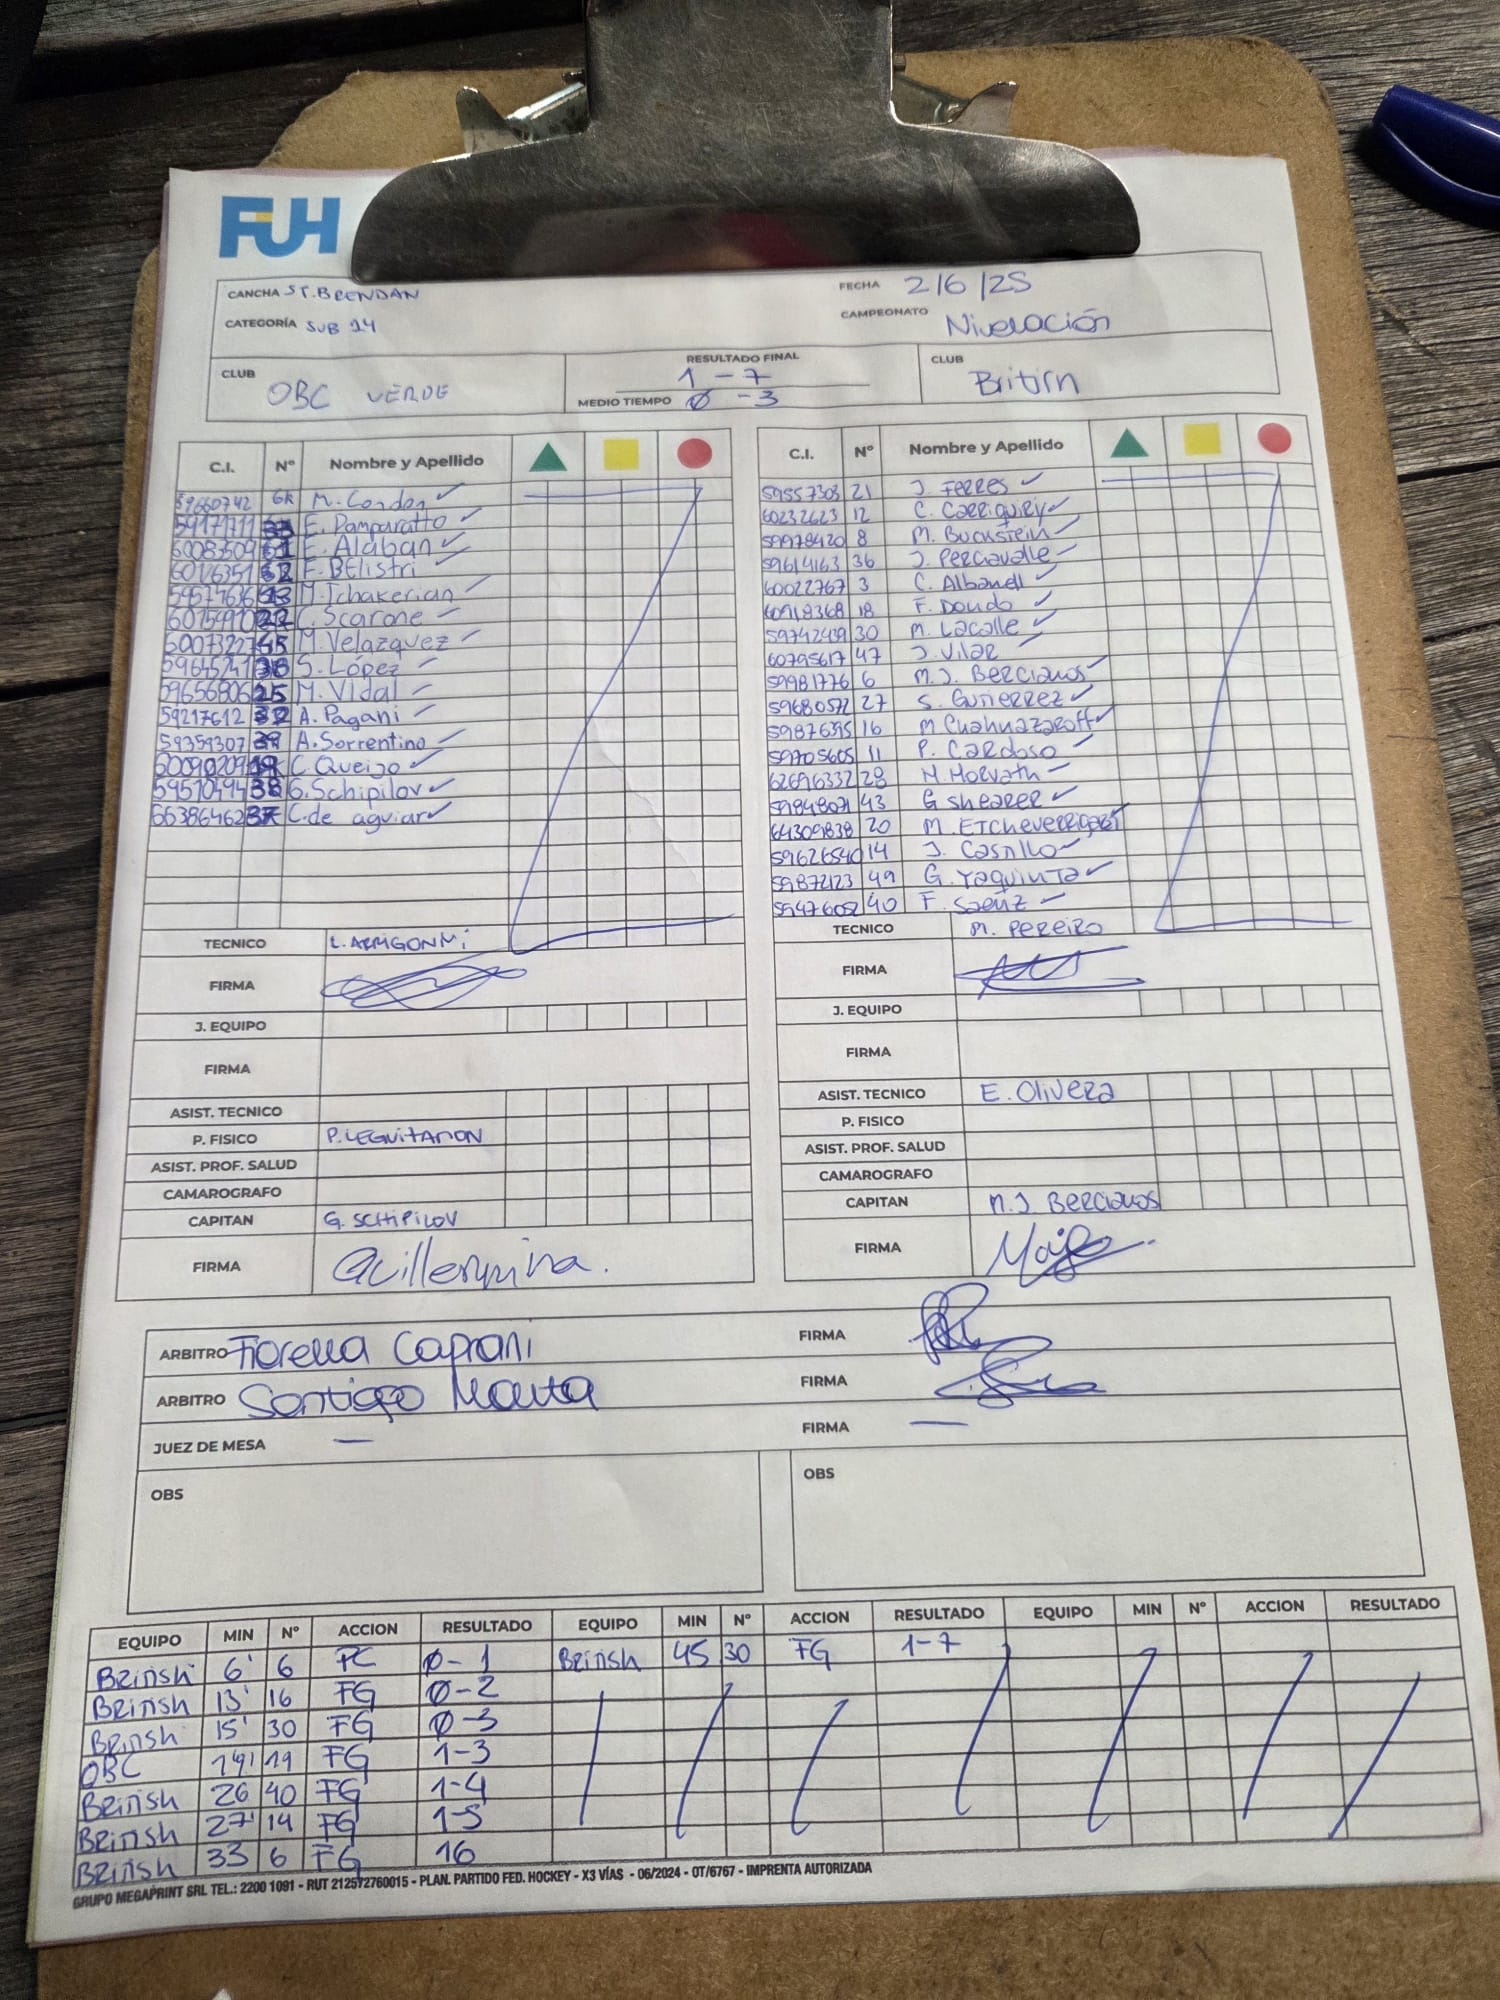 FUH
CANCHA ST. BRENDAN FECHA 2/6/25
CATEGORÍA SUB 14 CAMPEONATO Nivelación
CLUB OBC VERDE RESULTADO FINAL 1 - 7 CLUB
MEDIO TIEMPO 0 - 3
C.I. Nº Nombre y Apellido
59660742 GK M. Condon
E. Pampuratto
E. Alaban
F. Belistri
M. Tchakerian
C. Scarone
M. Velazquez
S. López
M. Vidal
59217612 A. Pagani
59359307 A. Sorrentino
C. Queijo
G. Schipilov
C. de aguiar
TECNICO
FIRMA
J. EQUIPO
FIRMA
ASIST. TECNICO
P. FISICO
ASIST. PROF. SALUD
CAMAROGRAFO
CAPITAN G. SCHIPILOV
FIRMA Guillermina.
C.I. Nº Nombre y Apellido
59557303 21 J. Ferres
60232623 12 C. Carriquiry
59978420 8 M. Buckstein
59614163 36 J. Perciavalle
60022767 3 C. Albanell
60918368 18 F. Dondo
59742439 30 M. Lacalle
60795617 47 J. Vilar
59981776 6 M.J. Bercianos
59680572 27 S. Gutierrez
16
59705605 11 P. Cardoso
62696332 28 M. Horvath
43 G Shearer
64309838 20
59626540 14 J. Castillo
59872123 49 G. Yaquinta
40 F. Saenz
TECNICO M. Pereiro
FIRMA
J. EQUIPO
FIRMA
ASIST. TECNICO E. Olivera
P. FISICO
ASIST. PROF SALUD
CAMAROGRAFO
CAPITAN M.J Bercianos
FIRMA
ARBITRO Fiorella Caprani FIRMA
ARBITRO Santiago FIRMA
JUEZ DE MESA — FIRMA —
OBS OBS
EQUIPO MIN Nº ACCION RESULTADO EQUIPO MIN Nº ACCION RESULTADO EQUIPO MIN Nº ACCION RESULTADO
British 6' 6 PC 0-1 British 45 30 FG 1-7
British 13' 16 FG 0-2
British 15' 30 FG 0-3
OBC 19 FG 1-3
British 26 40 FG 1-4
British 27' 14 FG 1-5
British 33 6 FG 16
GRUPO MEGAPRINT SRL TEL.: 2200 1091 - RUT 212572760015 - PLAN. PARTIDO FED. HOCKEY - X3 VÍAS - 06/2024 - OT/6767 - IMPRENTA AUTORIZADA